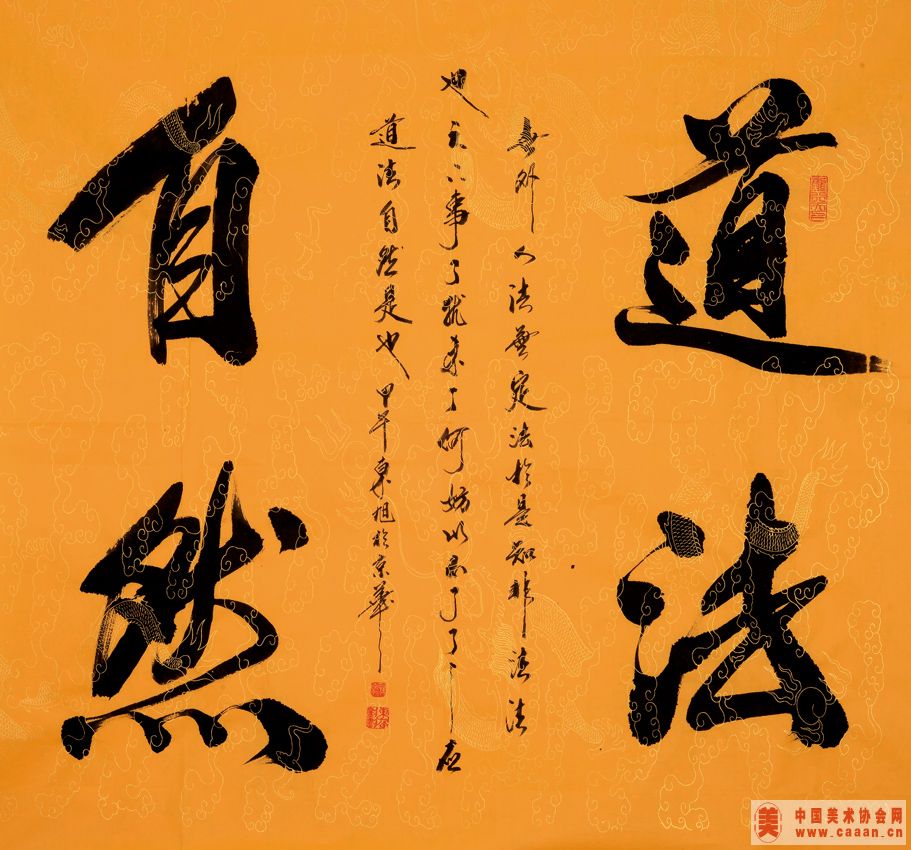 道法
世外人法無定法於是知非法法
也天下事了猶未了何妨以不了了之
道法自然是也甲午東旭於京華
自然
中国美术协会网
www.caaan.cn